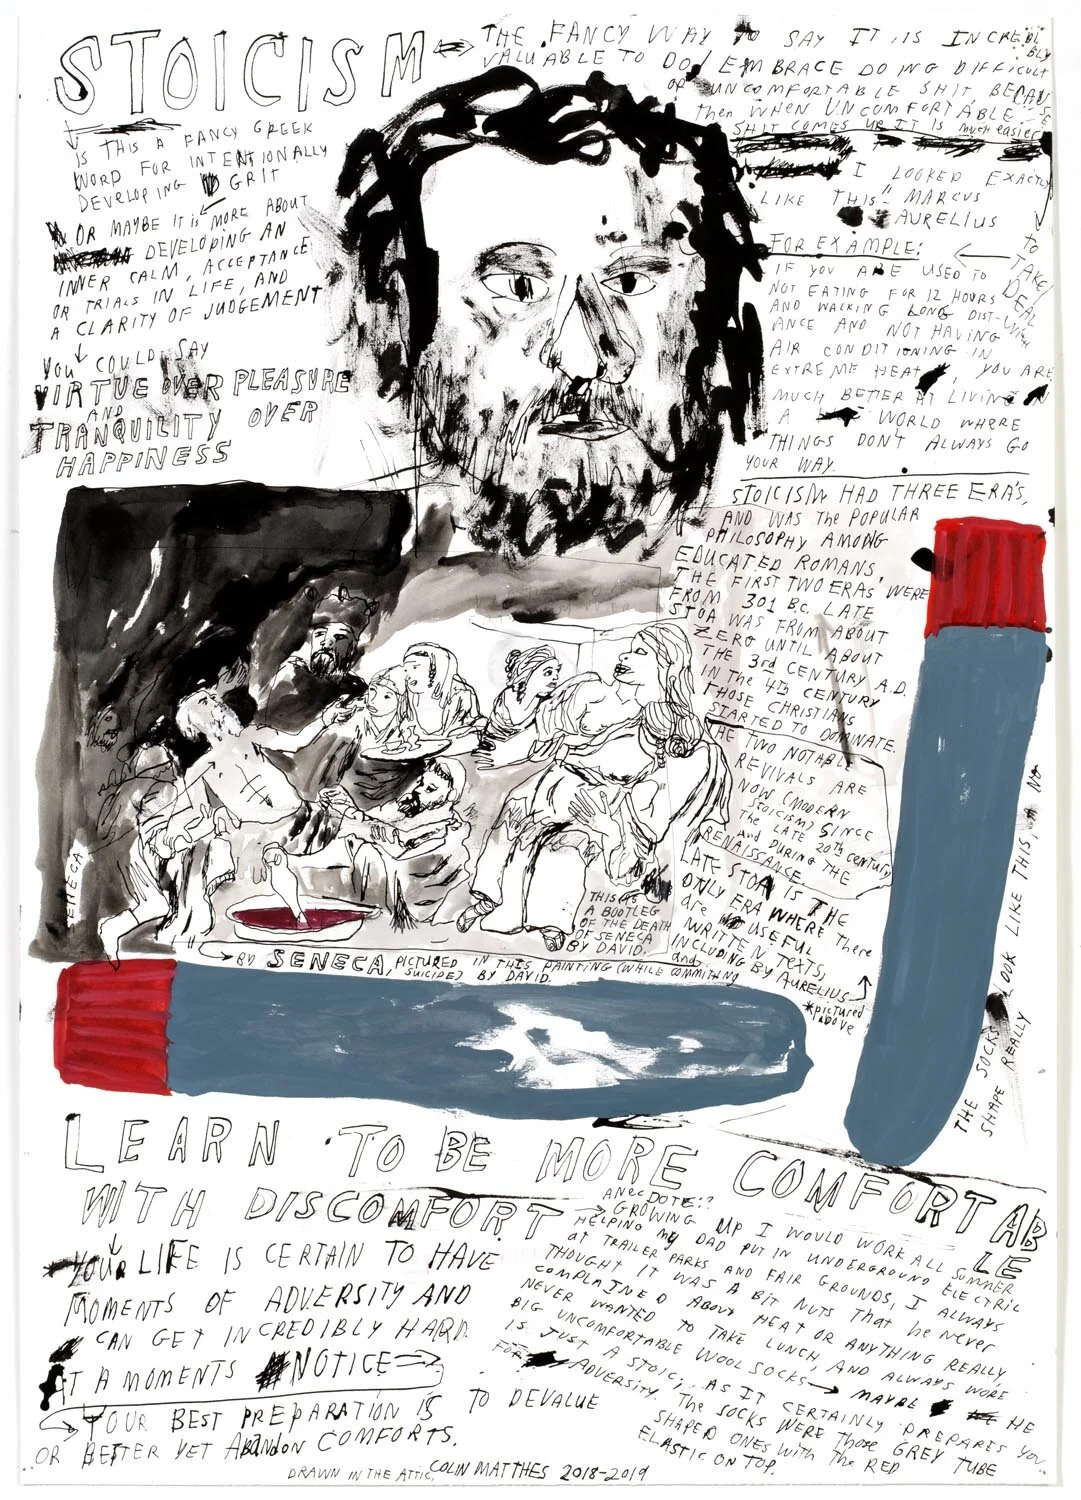 STOICISM
THE FANCY WAY TO SAY IT IS INCREDIBLY
VALUABLE TO DO / EMBRACE DOING DIFFICULT
OR UNCOMFORTABLE SHIT BECAUSE
Then WHEN UNCOMFORTABLE
SHIT COMES UP IT IS much easier
TO
TAKE/
DEAL
WITH
IS THIS A FANCY GREEK
WORD FOR INTENTIONALLY
DEVELOPING GRIT
OR MAYBE IT is MORE ABOUT
DEVELOPING AN
INNER CALM, ACCEPTANCE
OR TRIALS IN LIFE, AND
A CLARITY OF JUDGEMENT
YOU COULD SAY
VIRTUE OVER PLEASURE
AND
TRANQUILITY OVER
HAPPINESS
I LOOKED EXACTLY
LIKE THIS" MARCUS
AURELIUS
FOR EXAMPLE:
IF YOU ARE USED TO
NOT EATING FOR 12 HOURS
AND WALKING LONG DIST-
ANCE AND NOT HAVING
AIR CONDITIONING IN
EXTREME HEAT, YOU ARE
MUCH BETTER AT LIVING IN
A WORLD WHERE
THINGS DON'T ALWAYS GO
YOUR WAY.
STOICISM HAD THREE ERA'S,
AND WAS The POPULAR
PHILOSOPHY AMONG
EDUCATED ROMANS
THE FIRST TWO ERAS WERE
FROM 301 B.C. LATE
STOA WAS FROM ABOUT
ZERO UNTIL ABOUT
THE 3rd CENTURY A.D.
IN THE 4TH CENTURY
THOSE CHRISTIANS
STARTED TO DOMINATE.
THE TWO NOTABLE
REVIVALS ARE
NOW (MODERN
STOICISM) SINCE
The LATE 20TH CENTURY
and DURING THE
RENAISSANSE.
LATE STOA IS THE
ONLY ERA WHERE There
are USEFUL
WRITTEN TEXTS,
INCLUDING BY AURELIUS
*pictured
above
and
BY SENECA, PICTURED IN THIS PAINTING (WHILE COMMITING
SUICIDE) BY DAVID.
SENECA
THIS IS
A BOOTLEG
OF THE DEATH
OF SENECA
BY DAVID.
THE SOCKS LOOK LIKE THIS, A NO
SHAPE REALLY
LEARN TO BE MORE COMFORTABLE
WITH DISCOMFORT
YOUR LIFE IS CERTAIN TO HAVE
MOMENTS OF ADVERSITY AND
CAN GET INCREDIBLY HARD
AT A MOMENTS NOTICE
YOUR BEST PREPARATION IS TO DEVALUE
OR BETTER YET ABANDON COMFORTS.
ANECDOTE:?
GROWING UP I WOULD WORK ALL SUMMER
HELPING MY DAD PUT IN UNDERGROUND ELECTRIC
at TRAILER PARKS AND FAIR GROUNDS, I ALWAYS
THOUGHT IT WAS A BIT NUTS THAT he NEVER
COMPLAINED ABOUT HEAT OR ANYTHING REALLY,
NEVER WANTED TO TAKE LUNCH, AND ALWAYS WORE
BIG UNCOMFORTABLE WOOL SOCKS MAYBE HE
IS JUST A STOIC, AS IT CERTAINLY PREPARES YOU
FOR ADVERSITY. The SOCKS WERE Those GREY TUBE
SHAPED ONES WITH The RED
ELASTIC ON TOP.
DRAWN IN THE ATTIC, COLIN MATTHES 2018-2019